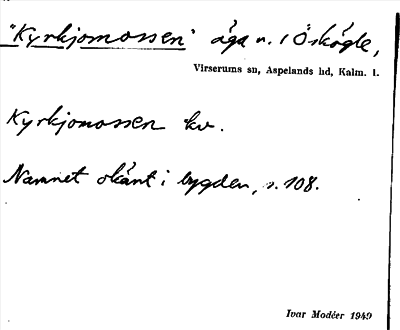 "Kyrkjomossen" äga n. i Öskögle,
Virserums sn, Aspelands hd, Kalm. l.
Kyrkjomossen kv.
Namnet okänt i bygden, s. 108.
Ivar Modéer 1949